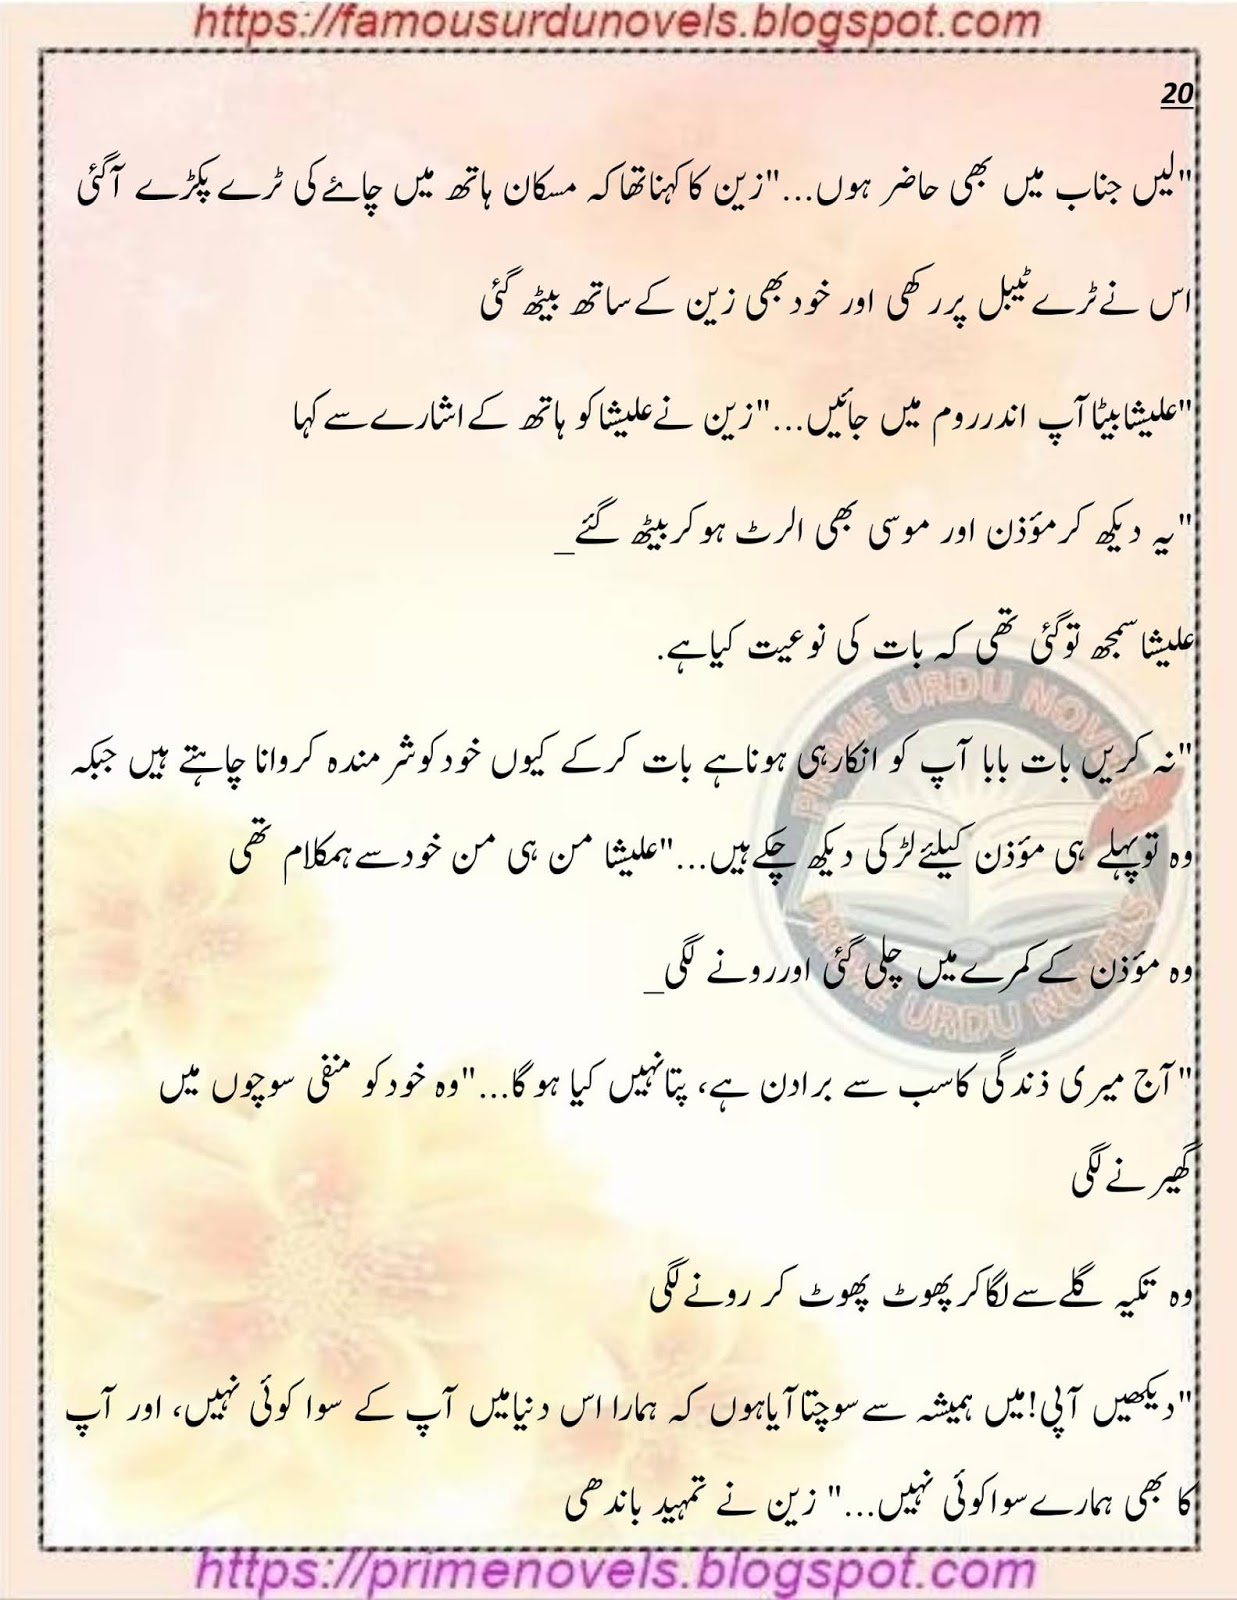 https://famousurdunovels.blogspot.com
20
"لیں جناب میں بھی حاضر ہوں..."زین کا کہنا تھا کہ مسکان ہاتھ میں چائے کی ٹرے پکڑے آ گئی
اس نے ٹرے ٹیبل پر رکھی اور خود بھی زین کے ساتھ بیٹھ گئی
"علیشا بیٹا آپ اندر روم میں جائیں..."زین نے علیشا کو ہاتھ کے اشارے سے کہا
"یہ دیکھ کر مؤذن اور موسی بھی الرٹ ہو کر بیٹھ گئے_
علیشا سمجھ تو گئی تھی کہ بات کی نوعیت کیا ہے.
"نہ کریں بات بابا آپ کو انکار ہی ہونا ہے بات کر کے کیوں خود کو شرمندہ کروانا چاہتے ہیں جبکہ
وہ تو پہلے ہی مؤذن کیلئے لڑکی دیکھ چکے ہیں..."علیشا من ہی من خود سے ہمکلام تھی
وہ مؤذن کے کمرے میں چلی گئی اور رونے لگی_
"آج میری ذندگی کا سب سے برا دن ہے، پتا نہیں کیا ہو گا..."وہ خود کو منفی سوچوں میں
گھیرنے لگی
وہ تکیہ گلے سے لگا کر پھوٹ پھوٹ کر رونے لگی
"دیکھیں آپی!میں ہمیشہ سے سوچتا آیا ہوں کہ ہمارا اس دنیا میں آپ کے سوا کوئی نہیں، اور آپ
کا بھی ہمارے سوا کوئی نہیں..." زین نے تمہید باندھی
PRIME URDU NOVELS
PRIME URDU NOVELS
https://primenovels.blogspot.com